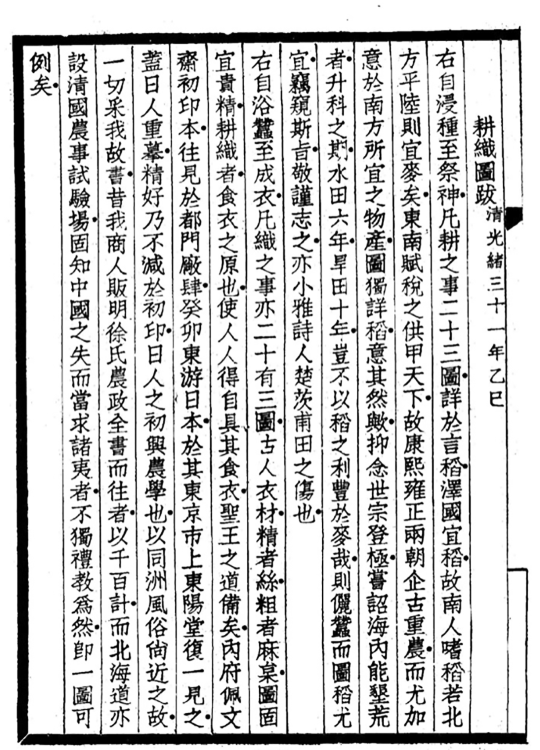 耕織圖跋清光緒三十一年乙巳
右自浸種至祭神凡耕之事二十三圖詳於言稻澤國宜稻故南人嗜稻若北
方平陸則宜麥矣東南賦稅之供甲天下故康熙雍正兩朝企古重農而尤加
意於南方所宜之物產圖獨詳稻意其然歟抑念世宗登極嘗詔海內能墾荒
者升科之期水田六年旱田十年豈不以稻之利豐於麥哉則儷蠶而圖稻尤
宜竊窺斯旨敬謹志之亦小雅詩人楚茨甫田之傷也
右自浴蠶至成衣凡織之事亦二十有三圖古人衣材精者絲粗者麻枲圖固
宜貴精耕織者食衣之原也使人人得自具其食衣聖王之道備矣內府佩文
齋初印本往見於都門廠肆癸卯東游日本於其東京市上東陽堂復一見之
蓋日人重摹精好乃不減於初印日人之初興農學也以同洲風俗尙近之故
一切釆我故書昔我商人販明徐氏農政全書而往者以千百計而北海道亦
設清國農事試驗場固知中國之失而當求諸夷者不獨禮教爲然卽一圖可
例矣